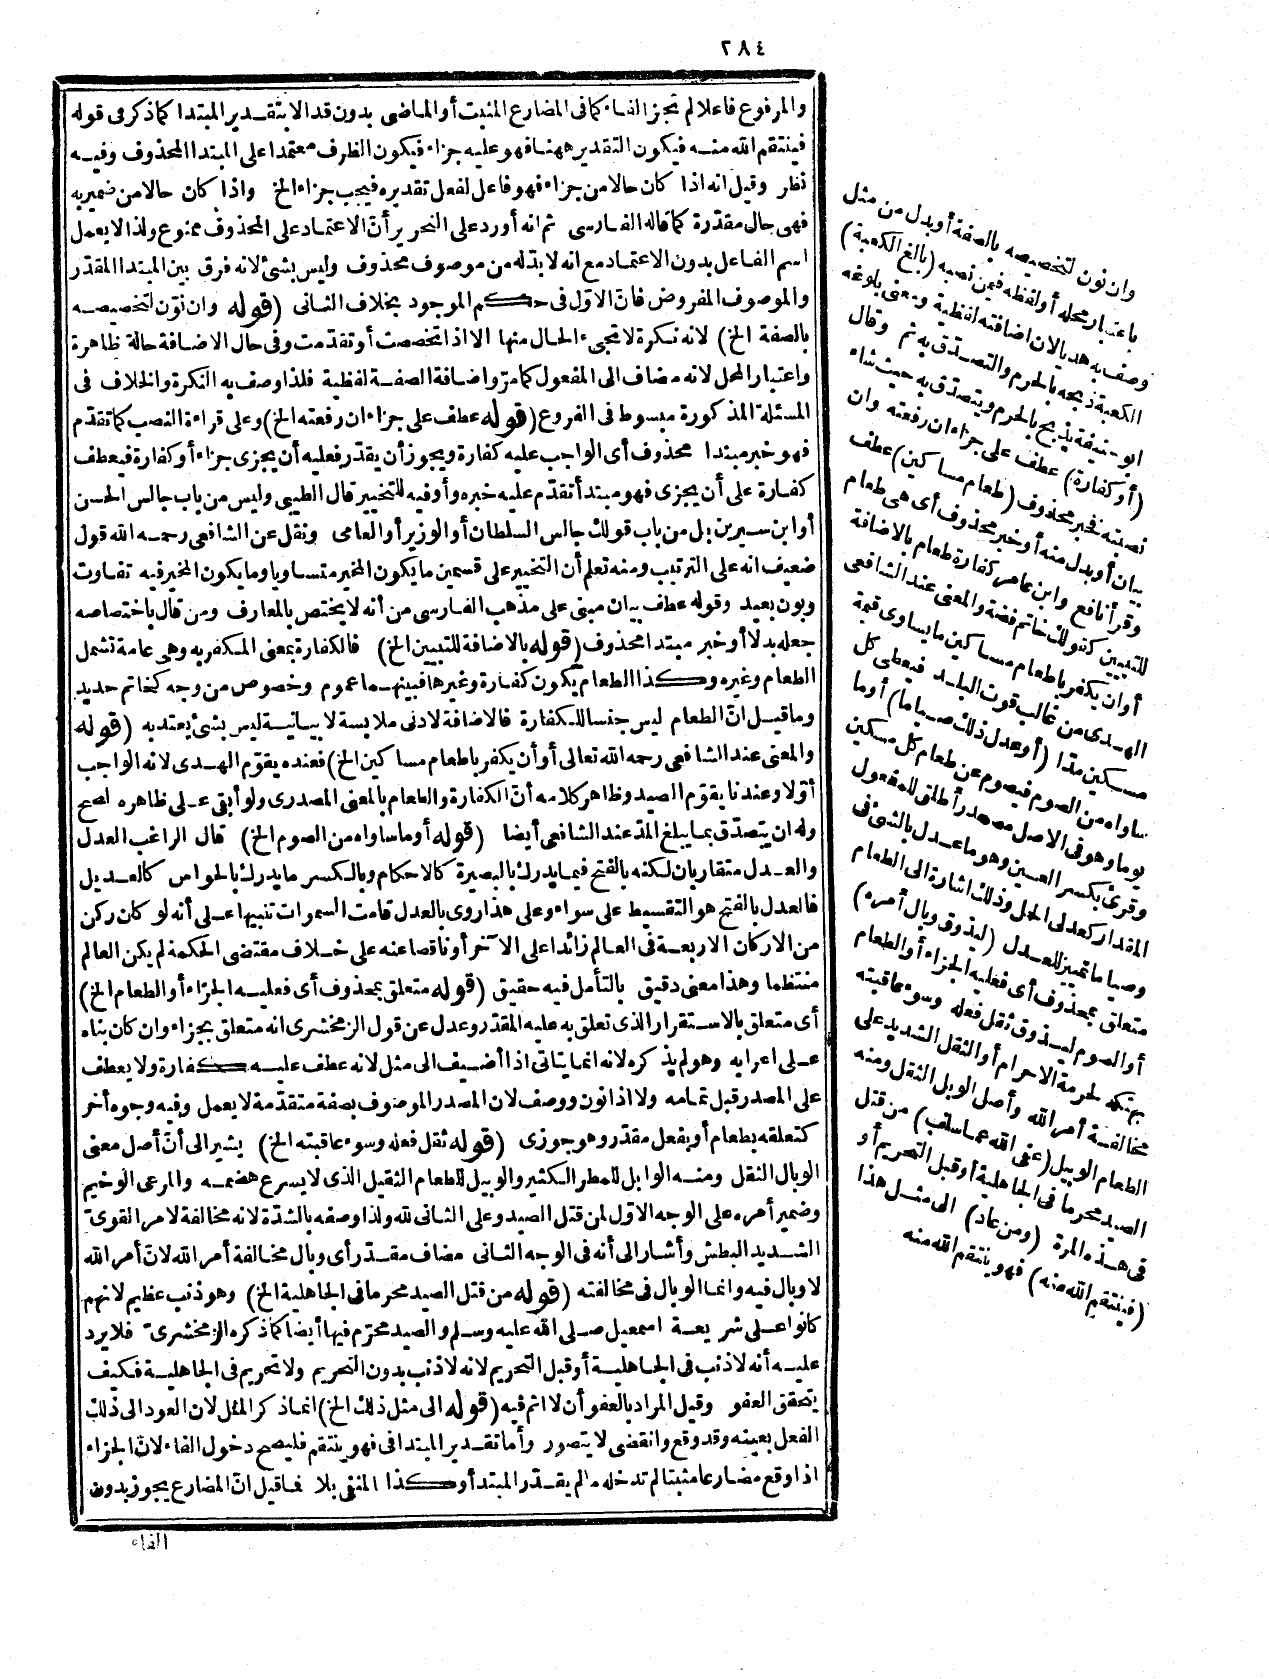 ٢٨٤
والمرفوع فاعلا لم تجز الفاء كما فى المضارع المثبت أو الماضى بدون قد الا بتقدير المبتدا كما ذكر فى قوله
فينتقم الله منه فيكون التقدير ههنا فهو عليه جزاء فيكون الظرف معتمدا على المبتدا المحذوف وفيه
نظر وقيل انه اذا كان حالا من جزاء فهو فاعل لفعل تقديره فيجب جزاء الخ واذا كان حالا من ضميربه
فهى حال مقدّرة كما قاله الفارسى ثم انه أورد على النحرير أنّ الاعتماد على المحذوف ممنوع ولذا لا يعمل
اسم الفاعل بدون الاعتماد مع انه لا بدّله من موصوف محذوف وليس بشئ لانه فرق بين المبتدا المقدّر
والموصوف المفروض فانّ الاوّل فى حكم الموجود بخلاف الثانى (قوله وان نوّن لتخصيصه
بالصفة الخ) لانه نكرة لا تجىء الحال منها الا اذا تخصصت أو تقدمت وفى حال الاضافة حالة ظاهرة
واعتبار المحل لانه مضاف الى المفعول كما مرّ واضافة الصفة لفظية فلذا وصف به النكرة والخلاف فى
المسئلة المذكورة مبسوط فى الفروع (قوله عطف على جزاء ان رفعته الخ) وعلى قراءة النصب كما تقدّم
فهو خبر مبتدا محذوف أى الواجب عليه كفارة ويجوز أن يقدّر فعليه أن يجزى جزاء أو كفارة فيعطف
كفارة على أن يجزى فهو مبتدأ تقدّم عليه خبره وأو فيه للتخيير قال الطيبى وليس من باب جالس الحسن
أو ابن سيرين بل من باب قولك جالس السلطان أو الوزير أو العامى ونقل عن الشافعى رحمه الله قول
ضعيف انه على الترتيب ومنه تعلم أن التخيير على قسمين ما يكون المخير متساويا وما يكون المخير فيه تفاوت
وبون بعيد وقوله عطف بيان مبنى على مذهب الفارسى من أنه لا يختص بالمعارف ومن قال باختصاصه
جعله بدلا أو خبر مبتدا محذوف (قوله بالاضافة للتبيين الخ) فالكفارة بمعنى المكفر به وهى عامة تشمل
الطعام وغيره وكذا الطعام يكون كفارة وغيرها فبينهما عموم وخصوص من وجه كخاتم حديد
وما قيل انّ الطعام ليس جنسا للكفارة فالاضافة لادنى ملابسة لا بيانية ليس بشئ يعتد به (قوله
والمعنى عند الشافعى رحمه الله تعالى أو أن يكفر باطعام مساكين الخ) فعنده يقوّم الهدى لانه الواجب
أوّلا وعندنا يقوّم الصيد وظاهر كلامه أنّ الكفارة والطعام بالمعنى المصدرى ولو أبقى على ظاهره لصح
وله ان يتصدّق بما يبلغ المدّ عند الشافعى أيضا (قوله أو ما ساواه من الصوم الخ) قال الراغب العدل
والعدل متقاربان لكنه بالفتح فيما يدرك بالبصيرة كالاحكام وبالكسر ما يدرك بالحواس كالعديل
فالعدل بالفتح هو التقسيط على سواء وعلى هذا روى بالعدل قامت السموات تنبيها على أنه لو كان ركن
من الاركان الاربعة فى العالم زائدا على الآخر أو ناقصا عنه على خلاف مقتضى الحكمة لم يكن العالم
منتظما وهذا معنى دقيق بالتأمل فيه حقيق (قوله متعلق بمحذوف أى فعليه الجزاء أو الطعام الخ)
أى متعلق بالاستقرار الذى تعلق به عليه المقدّر وعدل عن قول الزمخشرى انه متعلق بجزاء وان كان بناه
على اعرابه وهو لم يذكره لانه انما يتاتى اذا أضيف الى مثل لانه عطف عليه كفارة ولا يعطف
على المصدر قبل تمامه ولا اذا نون ووصف لان المصدر الموصوف بصفة متقدّمة لا يعمل وفيه وجوه أخر
كتعلقه بطعام أو بفعل مقدّر وهو جوزى (قوله ثقل فعله وسوء عاقبته الخ) يشير الى أنّ أصل معنى
الوبال الثقل ومنه الوابل للمطر الكثير والوبيل للطعام الثقيل الذى لا يسرع هضمه والمرعى الوخيم
وضمير أمره على الوجه الاوّل لمن قتل الصيد وعلى الثانى لله ولذا وصفه بالشدّة لانه مخالفة لامر القوىّ
الشديد البطش وأشار الى أنه فى الوجه الثانى مضاف مقدّر أى وبال مخالفة أمر الله لانّ أمر الله
لا وبال فيه وانما الوبال فى مخالفته (قوله من قتل الصيد محرما فى الجاهلية الخ) وهو ذنب عظيم لانهم
كانوا على شريعة اسمعيل صلى الله عليه وسلم والصيد محرّم فيها أيضا كما ذكره الزمخشرىّ فلا يرد
عليه أنه لا ذنب فى الجاهلية أو قبل التحريم لانه لا ذنب بدون التحريم ولا تحريم فى الجاهلية فكيف
يتحقق العفو وقيل المراد بالعفو أن لا اثم فيه (قوله الى مثل ذلك الخ) انما ذكر المثل لان العود الى ذلك
الفعل بعينه وقد وقع وانقضى لا يتصور وأما تقدير المبتدا فى فهو ينتقم فليصح دخول الفاء لانّ الجزاء
اذا وقع مضارعا مثبتا لم تدخله ما لم يقدّر المبتدأ وكذا المنفى بلا فما قيل انّ المضارع يجوز بدون
الفاء
وان نون لتخصيصه بالصفة أو بدل من مثل
باعتبار محله أو لفظه فيمن نصبه (بالغ الكعبة)
وصف به هديا لان اضافته لفظية ومعنى بلوغه
الكعبة ذبحه بالحرم والتصدّق به ثم وقال
أبو حنيفة يذبح بالحرم ويتصدق به حيث شاء
(أو كفارة) عطف على جزاء ان رفعته وان
نصبته فخبر محذوف (طعام مساكين) عطف
بيان أو بدل منه أو خبر محذوف أى هى طعام
وقرأ نافع وابن عامر كفارة طعام بالاضافة
للتبيين كقولك خاتم فضة والمعنى عند الشافعى
أو ان يكفر باطعام مساكين ما يساوى قيمة
الهدى من غالب قوت البلد فيعطى كل
مسكين مدّا (أو عدل ذلك صياما) أو ما
ساواه من الصوم فيصوم عن طعام كل مسكين
يوما وهو فى الاصل مصدر أطلق للمفعول
وقرئ بكسر العين وهو ما عدل بالشئ فى
المقدار كعدلى الحمل وذلك اشارة الى الطعام
وصياما تمييز للعدل (ليذوق وبال أمره)
متعلق بمحذوف أى فعليه الجزاء أو الطعام
أو الصوم ليذوق ثقل فعله وسوء عاقبته
بهتكه لحرمة الاحرام أو الثقل الشديد على
مخالفة أمر الله وأصل الوبل الثقل ومنه
الطعام الوبيل (عفى الله عما سلف) من قتل
الصيد محرما فى الجاهلية أو قبل التحريم أو
فى هذه المرة (ومن عاد) الى مثل هذا
(فينتقم الله منه) فهو ينتقم الله منه